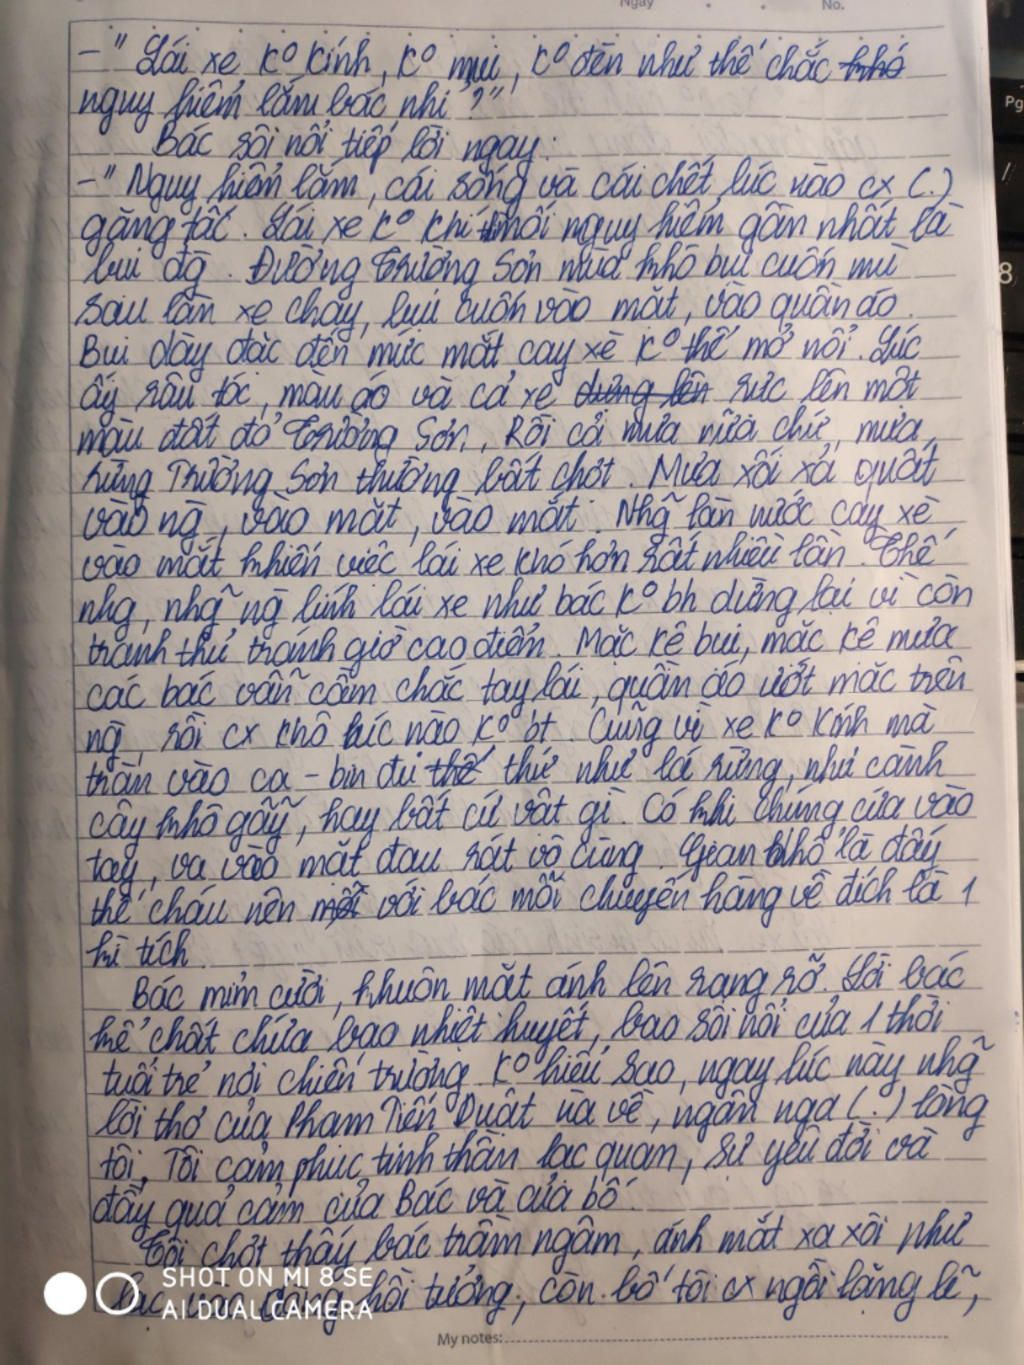 Ngày No.
- " Lái xe Kº Kính, Kº mui, Kº đèn như thế chắc khó
nguy hiểm lắm bác nhỉ ? "
Bác sôi nổi tiếp lời ngay:
- " Nguy hiểm lắm, cái sống và cái chết lúc nào cx (.)
găng tấc. Lái xe Kº Khí mối nguy hiểm gần nhất là
bụi đg. Đường Trường Sơn mùa khô bụi cuốn mù
sau làn xe chạy, bụi cuốn vào mặt, vào quần áo.
Bụi dày đặc đến mức mắt cay xè Kº thể mở nổi. Lúc
ấy râu tóc, màu áo và cả xe dựng lên rực lên một
màu đất đỏ Trường Sơn. Rồi cả mưa nữa chứ, mưa
rừng Trường Sơn thường bất chợt. Mưa xối xả quất
vào ng, vào mặt, vào mắt. Nhg~ làn nước cay xè
vào mắt khiến việc lái xe khó hơn rất nhiều lần. Thế
nhg, nhg~ ng lính lái xe như bác Kº bh dừng lại vì còn
tranh thủ tránh giờ cao điểm. Mặc kệ bụi, mặc kệ mưa
các bác vẫn cầm chắc tay lái, quần áo ướt mặc trên
ng, rồi cx khô lúc nào Kº bt. Cũng vì xe Kº Kính mà
tràn vào ca - bin đủ thế thứ như lá rừng, như cành
cây khô gãy, hay bất cứ vật gì. Có khi chúng cứa vào
tay, va vào mặt đau rát vô cùng. Gian khổ là đấy
thế cháu nên mỗi với bác mỗi chuyến hàng về đích là 1
kì tích.
Bác mỉm cười, khuôn mặt ánh lên rạng rỡ. Lời bác
kể chất chứa bao nhiệt huyết, bao sôi nổi của 1 thời
tuổi trẻ nơi chiến trường. Kº hiểu sao, ngay lúc này nhg~
lời thơ của Phạm Tiến Duật ùa về, ngân nga (.) lòng
tôi. Tôi cảm phục tinh thần lạc quan, sự yêu đời và
đầy quả cảm của Bác và của bố.
Tôi chợt thấy bác trầm ngâm, ánh mắt xa xôi như
bác vẫn đang hồi tưởng, còn bố tôi cx ngồi lặng lẽ,
My notes:
SHOT ON MI 8 SE
AI DUAL CAMERA
Pg
8